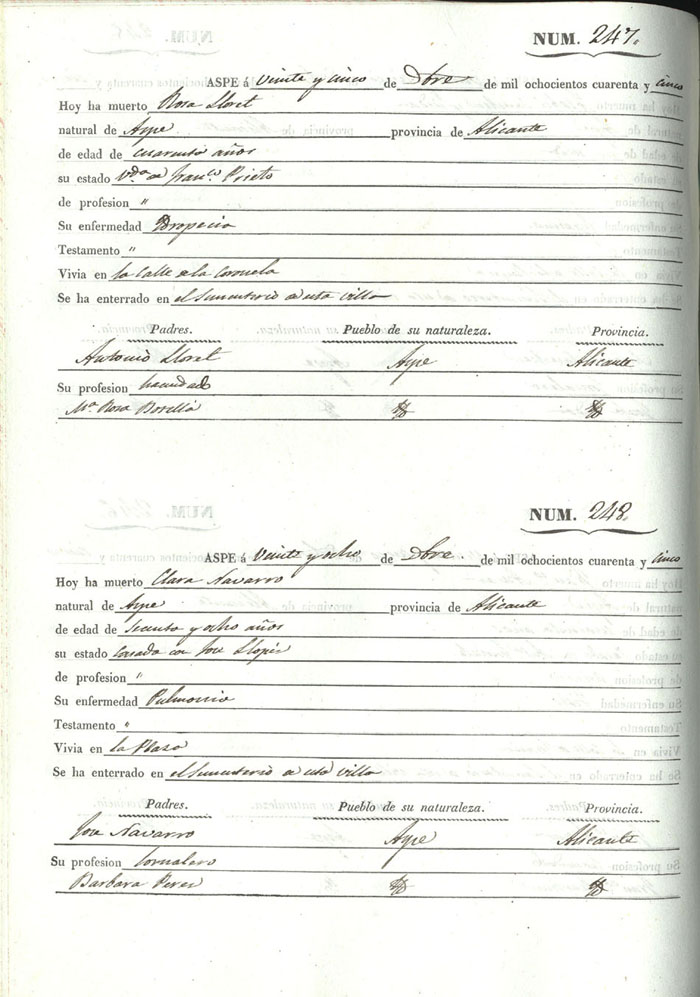 NUM. 247.
ASPE á Veinte y cinco de Dbre de mil ochocientos cuarenta y cinco
Hoy ha muerto Rosa Lloret
natural de Aspe provincia de Alicante
de edad de cuarenta años
su estado Vda. de Franco. Prieto
de profesion "
Su enfermedad Dropecia
Testamento "
Vivia en la Calle de la Coronela
Se ha enterrado en el Sementerio de esta villa
Padres. Pueblo de su naturaleza. Provincia.
Antonio Lloret Aspe Alicante
Su profesion hacendado
Ma. Rosa
NUM. 248.
ASPE á Veinte y ocho de Dbre. de mil ochocientos cuarenta y cinco
Hoy ha muerto Clara Navarro
natural de Aspe provincia de Alicante
de edad de Secenta y ocho años
su estado Casada con Jose Llopis
de profesion "
Su enfermedad Pulmonia
Testamento "
Vivia en la Plaza
Se ha enterrado en el Sementerio de esta villa
Padres. Pueblo de su naturaleza. Provincia.
Jose Navarro Aspe Alicante
Su profesion Jornalero
Barbara Perez